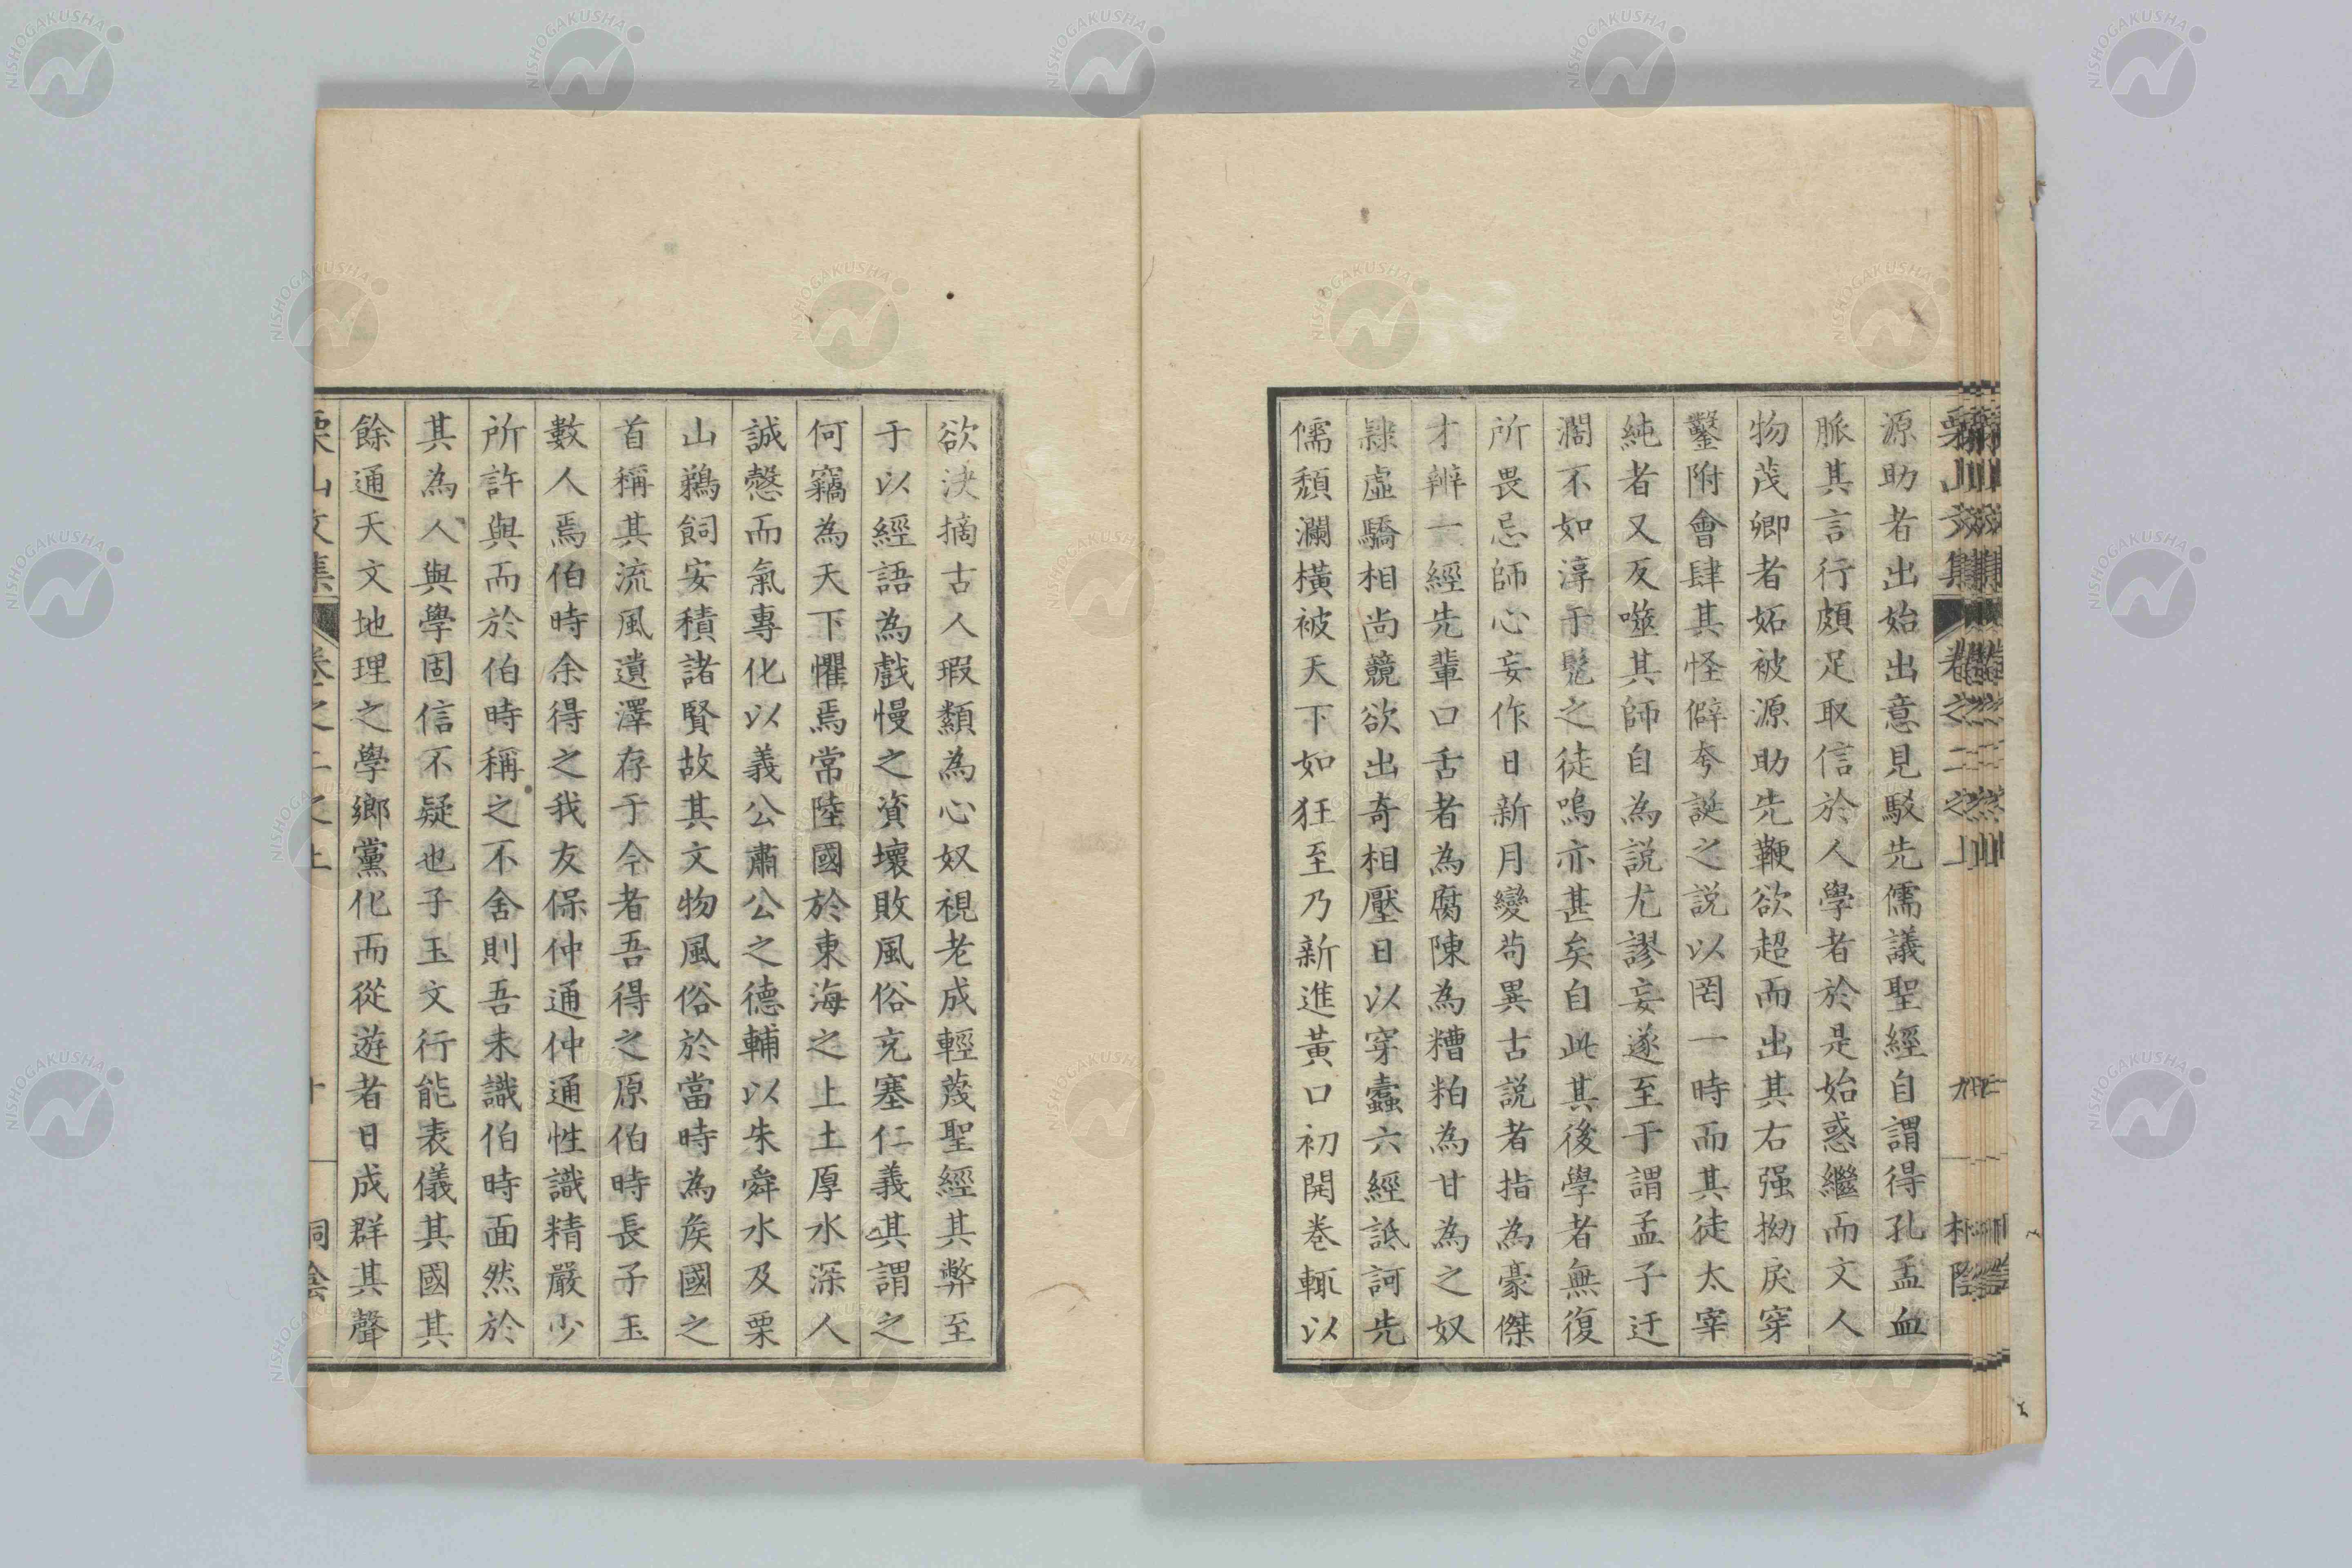 源助者出始出意見駁先儒議聖經自謂得孔孟血
脈其言行頗足取信於人學者於是始惑繼而文人
物茂卿者妬被源助先鞭欲超而出其右强拗戾穿
鑿附會肆其怪僻夸誕之説以罔一時而其徒太宰
純者又反噬其師自為説尤謬妄遂至于謂孟子迂
濶不如淳于髡之徒嗚亦甚矣自此其後學者無復
所畏忌師心妄作日新月變茍異古説者指為豪傑
才辨一經先輩口舌者為腐陳為糟粕為甘為之奴
隷虛驕相尚競欲出奇相壓日以穿蠧六經詆訶先
儒頽瀾横被天下如狂至乃新進黃口初開卷輒以
欲決摘古人瑕纇為心奴視老成輕蔑聖經其弊至
于以經語為戲慢之資壞敗風俗充塞仁義其謂之
何竊為天下懼焉常陸國於東海之上土厚水深人
誠慤而氣專化以義公肅公之德輔以朱舜水及栗
山鵜飼安積諸賢故其文物風俗於當時為矦國之
首稱其流風遺澤存于今者吾得之原伯時長子玉
數人焉伯時余得之我友保仲通仲通性識精嚴少
所許與而於伯時稱之不舍則吾未識伯時面然於
其為人與學固信不疑也子玉文行能表儀其國其
餘通天文地理之學鄉黨化而從遊者日成群其聲
栗山文集 卷之二之上 十 洞陰
NISHOGAKUSHA